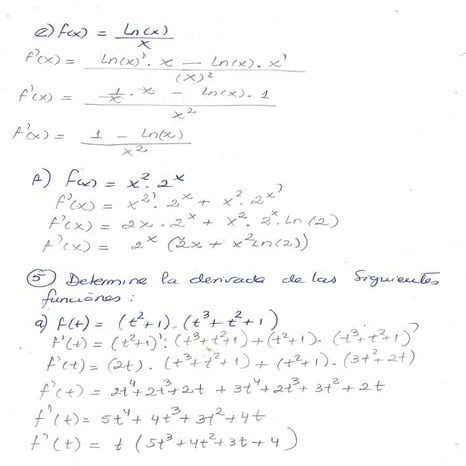 e) f(x) = ln(x)/x
f'(x) = (ln(x)'. x − ln(x). x')/(x)²
f'(x) = (1/x . x − ln(x). 1)/x²
f'(x) = (1 − ln(x))/x²
f) f(x) = x². 2^x
f'(x) = x²'. 2^x + x². 2^x'
f'(x) = 2x . 2^x + x². 2^x. ln(2)
f'(x) = 2^x (2x + x² ln(2))
⑤ Determine la derivada de las siguientes
funciones :
a) f(t) = (t²+1). (t³+t²+1)
f'(t) = (t²+1)'. (t³+t²+1) + (t²+1). (t³+t²+1)'
f'(t) = (2t). (t³+t²+1) + (t²+1). (3t²+2t)
f'(t) = 2t⁴+2t³+2t + 3t⁴+2t³+3t²+2t
f'(t) = 5t⁴ + 4t³ + 3t² + 4t
f'(t) = t (5t³+4t²+3t+4)